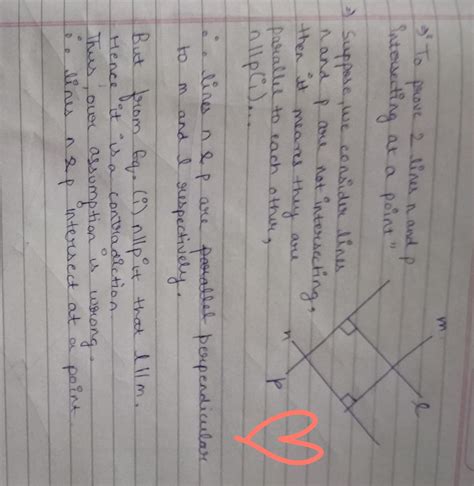 9) "To prove 2 lines n and p
intersecting at a point"
→) Suppose, we consider lines
n and p are not intersecting,
then it means they are
parallel to each other,
n||p (i)...
m
l
n
p
∴ lines n & p are parallel perpendicular
to m and l respectively.
But from Eq. (i) n||p it that l||m.
Hence it is a contradiction
Thus, our assumption is wrong,
∴ lines n & p intersect at a point